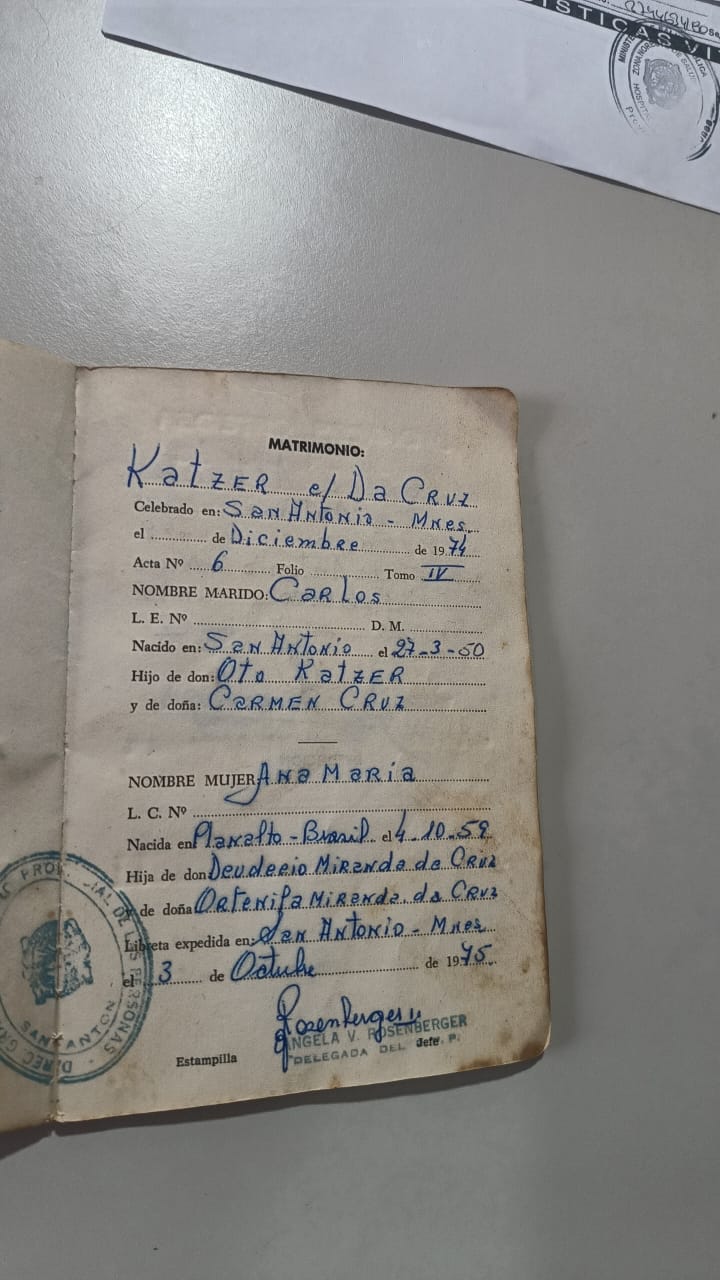 ISTICAS VI
MATRIMONIO:
Katzer c/ Da Cruz
Celebrado en: San Antonio - Mnes.
el ............ de Diciembre ............ de 1974
Acta Nº ... 6 ............ Folio ............ Tomo IV
NOMBRE MARIDO: Carlos
L. E. Nº ............ D. M. ............
Nacido en: San Antonio el 27-3-50
Hijo de don: Oto Katzer
y de doña: Carmen Cruz
NOMBRE MUJER Ana Maria
L. C. Nº ............
Nacida en Planalto - Brasil el 4-10-59
Hija de don Miranda da Cruz
y de doña Miranda da Cruz
Libreta expedida en: San Antonio - Mnes.
el 3 de Octubre ............ de 1975
Rosenberger
ANGELA V. ROSENBERGER
DELEGADA DEL R. P.
Jefe
Estampilla
DIREC. GRAL. PROVINCIAL DE LAS PERSONAS
SAN ANTONIO